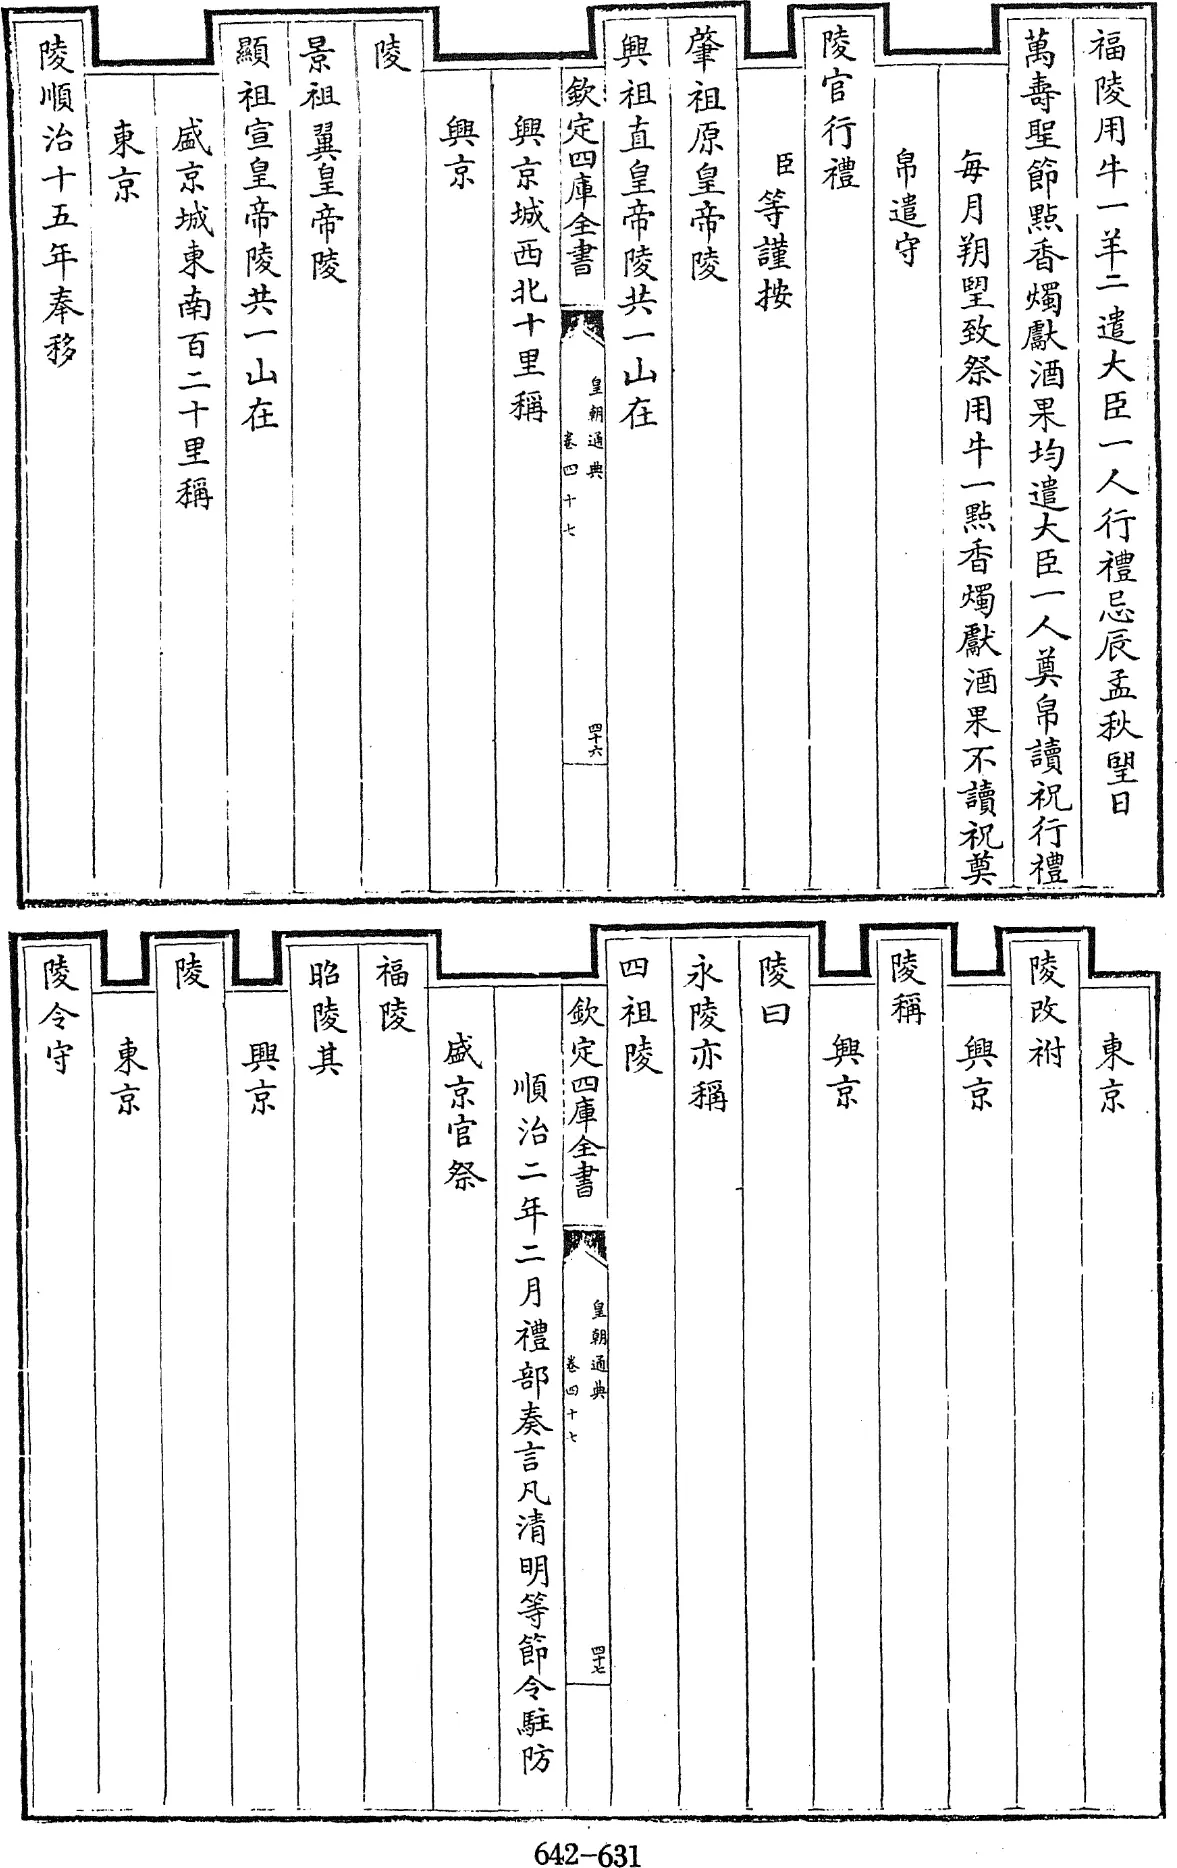 福陵用牛一羊二遣大臣一人行禮忌辰孟秋朢日
萬壽聖節點香燭獻酒果均遣大臣一人奠帛讀祝行禮
每月朔朢致祭用牛一點香燭獻酒果不讀祝奠
帛遣守
陵官行禮
臣等謹按
肇祖原皇帝陵
興祖直皇帝陵共一山在
欽定四庫全書
皇朝通典
卷四十七
四十六
興京城西北十里稱
興京
陵
景祖翼皇帝陵
顯祖宣皇帝陵共一山在
盛京城東南百二十里稱
東京
陵順治十五年奉移
東京
陵改祔
興京
陵稱
興京
陵曰
永陵亦稱
四祖陵
欽定四庫全書
皇朝通典
卷四十七
四十七
順治二年二月禮部奏言凡清明等節令駐防
盛京官祭
福陵
昭陵其
興京
陵
東京
陵令守
642-631